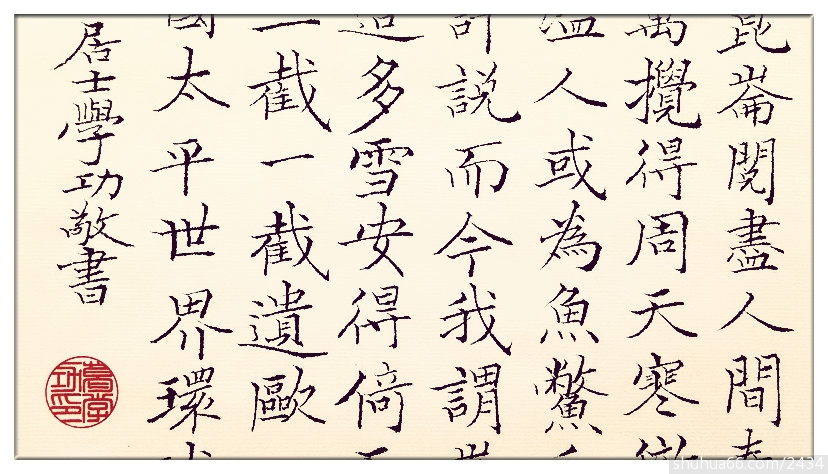 崑崙閱盡人間
萬攪得周天寒徹
溢人或為魚鱉
評說而今我謂
這多雪安得倚
一截一截遺歐
國太平世界環球
居士學功敬書
shuhua66.com/2434